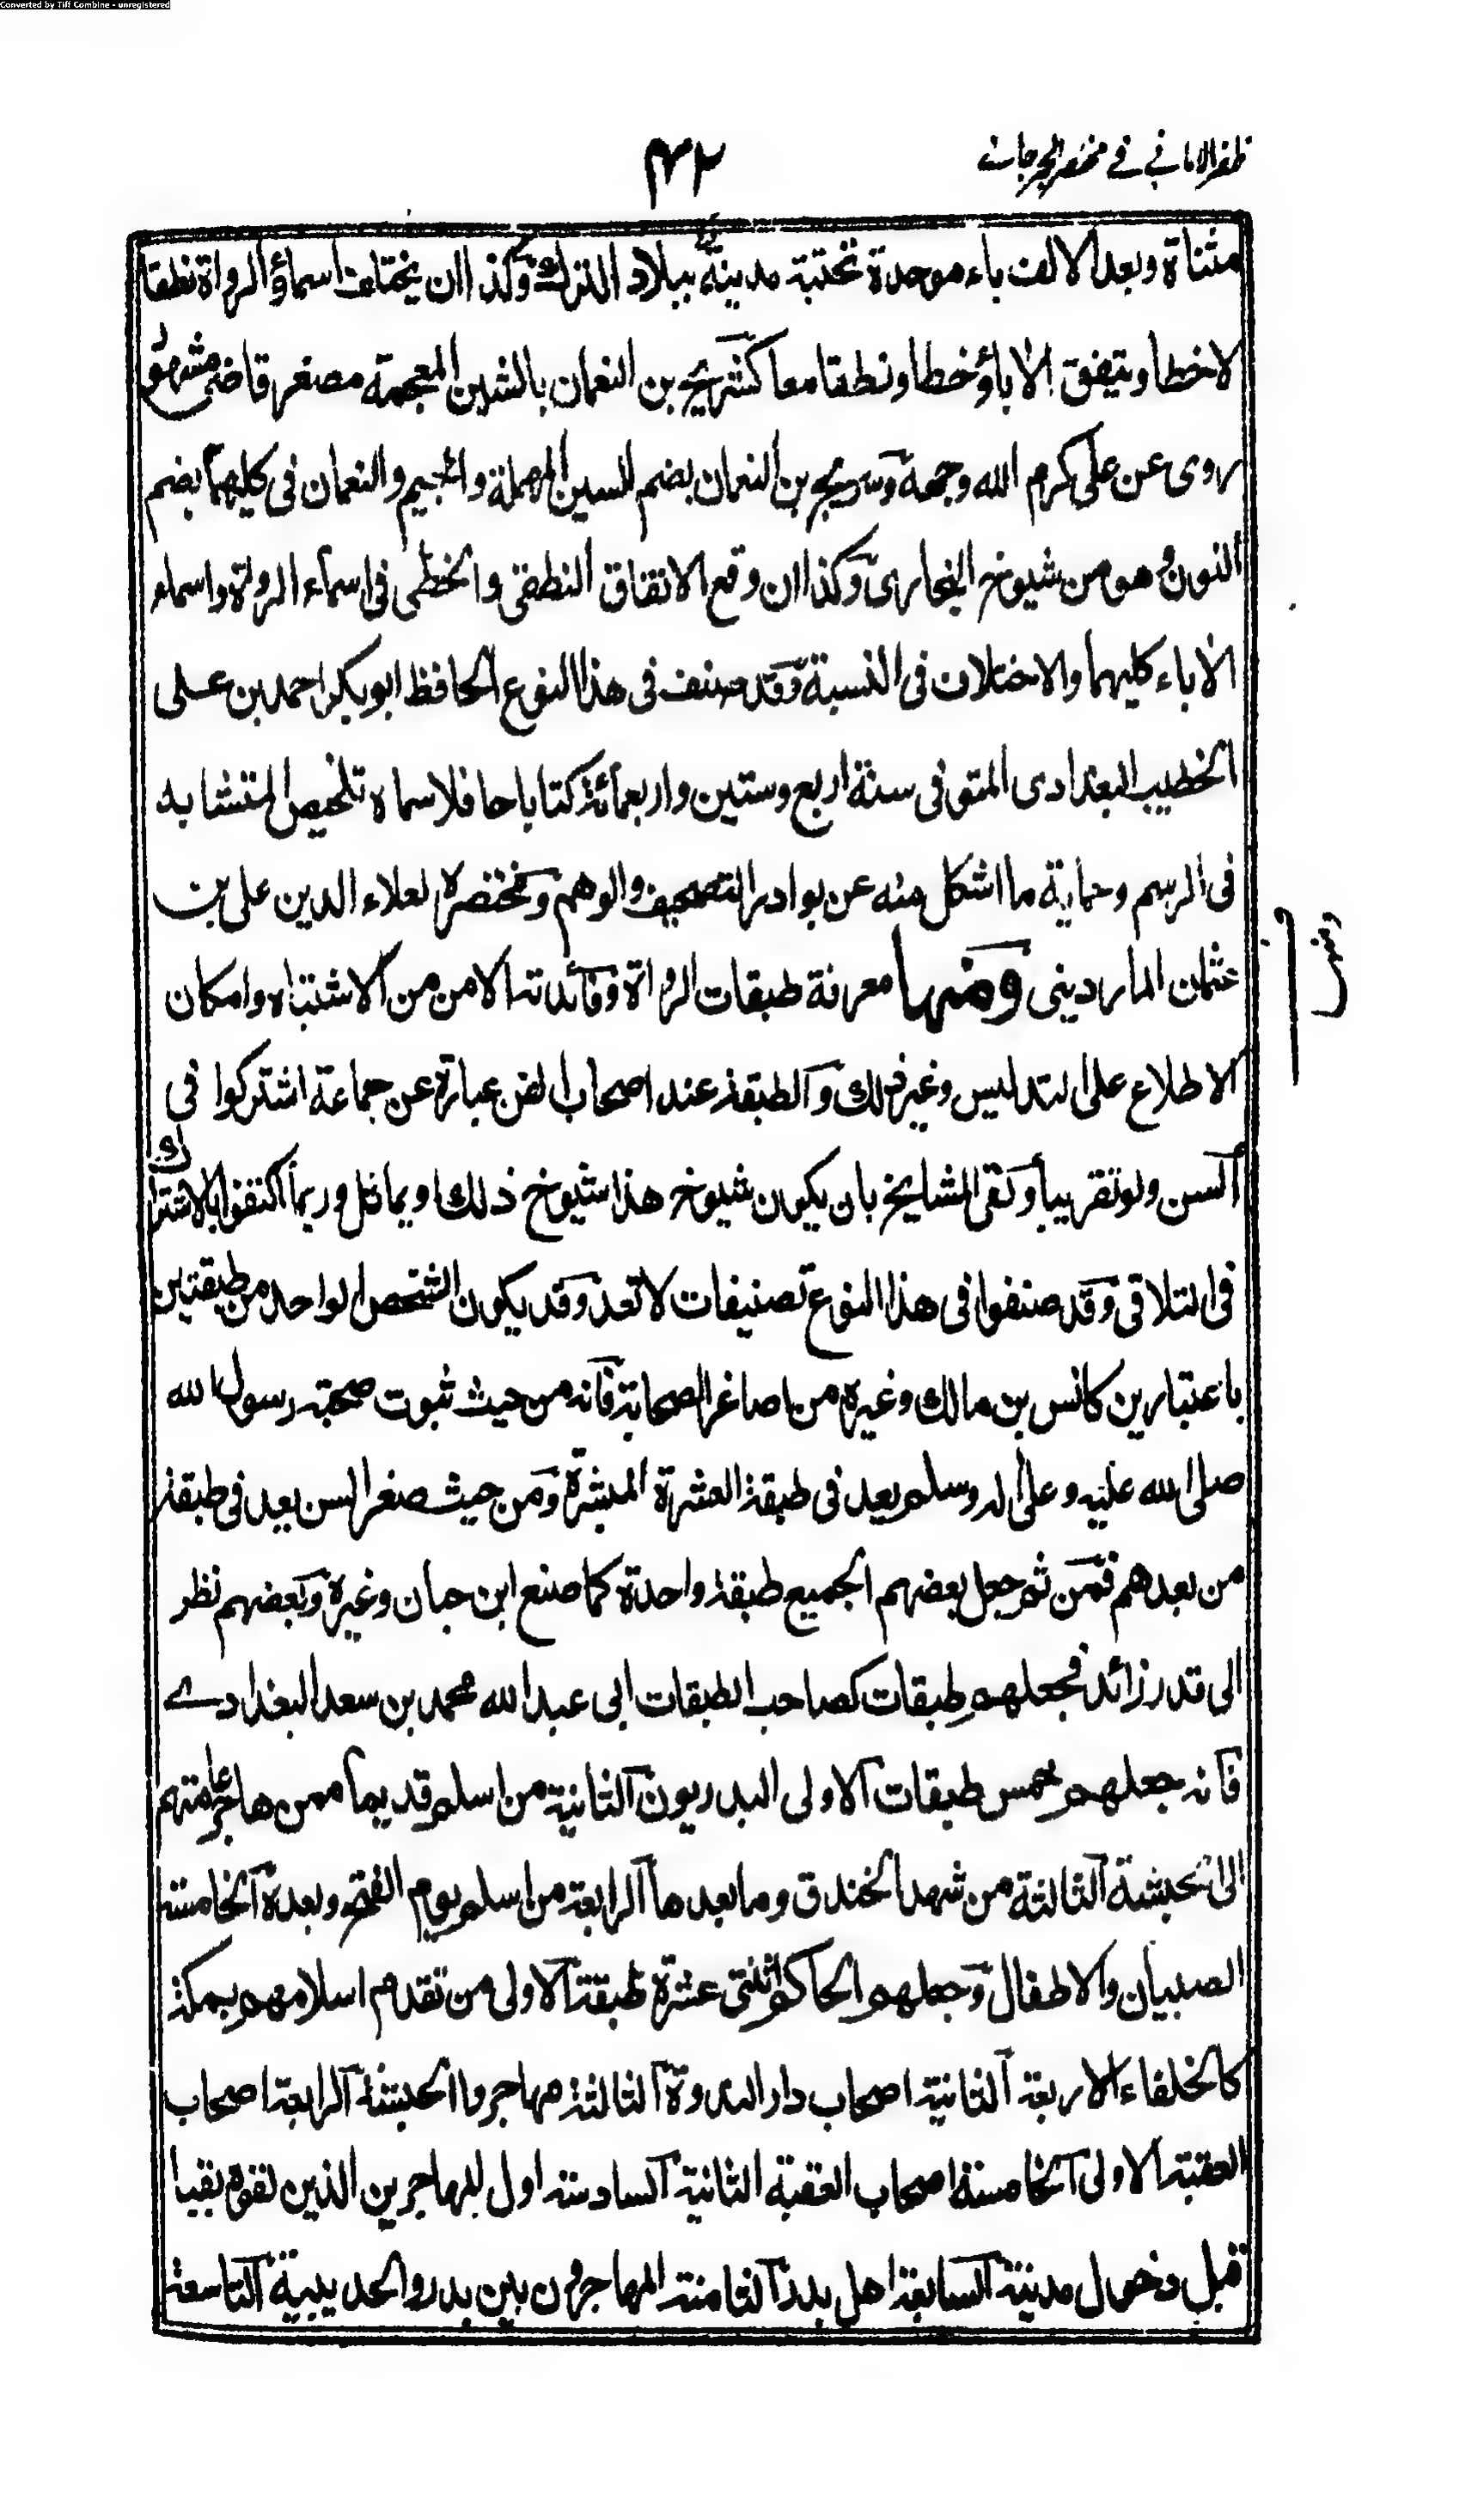 Converted by Tiff Combine - unregistered
ظفر الامانی فی مختصر الجرجانی
مثناة وبعد الالف باء موحدة تحتية مدينة ببلاد الترك وكذا ان يختلف اسماؤ الرواة نطقا
لاخطا ويتفق الاباؤ خطا ونطقا معا كشريح بن النعمان بالشين المعجمة مصغر قاض مشهور
روى عن على كرم الله وجهه وسريج بن النعمان بضم السين المهملة والجيم والنعمان فى كليهما بضم
النون وهو من شيوخ البخارى وكذا ان وقع الاتفاق النطقى والخطى فى اسماء الرواة واسماء
الاباء كليهما والاختلاف فى النسبة وقد صنف فى هذا النوع الحافظ ابو بكر احمد بن على
الخطيب البغدادى المتوفى سنة اربع وستين واربعمائة كتابا حافلا سماه تلخيص المتشابه
فى الرسم وحماية ما اشكل منه عن بوادر التصحيف والوهم ومختصره لعلاء الدين على بن
عثمان الماردينى ومنها معرفة طبقات الرواة وفائدته الامن من الاشتباه وامكان
الاطلاع على التدليس وغير ذلك والطبقة عند اصحاب الفن عبارة عن جماعة اشتركوا فى
السن ولو تقريبا وفى المشايخ بان يكون شيوخ هذا شيوخ ذلك او يماثل وربما اكتفوا بالاشتراك
فى التلاقى وقد صنفوا فى هذا النوع تصنيفات لا تعد وقد يكون الشخص الواحد من طبقتين
باعتبارين كانس بن مالك وغيره من اصاغر الصحابة فانه من حيث ثبوت صحبته رسول الله
صلى الله عليه وعلى اله وسلم يعد فى طبقة العشرة المبشرة ومن حيث صغر السن يعد فى طبقة
من بعدهم فمن ثم جعل بعضهم الجميع طبقة واحدة كما صنع ابن حبان وغيره وبعضهم نظر
الى قدر زائد فجعلهم طبقات كصاحب الطبقات ابى عبد الله محمد بن سعد البغدادے
فانه جعلهم خمس طبقات الاولى البدريون الثانية من اسلم قديما ممن هاجر عامتهم
الى الحبشة الثالثة من شهد الخندق وما بعدها الرابعة من اسلم يوم الفتح وبعده الخامسة
الصبيان والاطفال وجعلهم الحاكم اثنتى عشرة طبقة الاولى من تقدم اسلامهم بمكة
كالخلفاء الاربعة الثانية اصحاب دار الندوة الثالثة مهاجروا الحبشة الرابعة اصحاب
العقبة الاولى الخامسة اصحاب العقبة الثانية السادسة اول المهاجرين الذين لقوه بقبا
قبل دخول مدينة السابعة اهل بدر الثامنة المهاجرون بين بدر والحديبية التاسعة